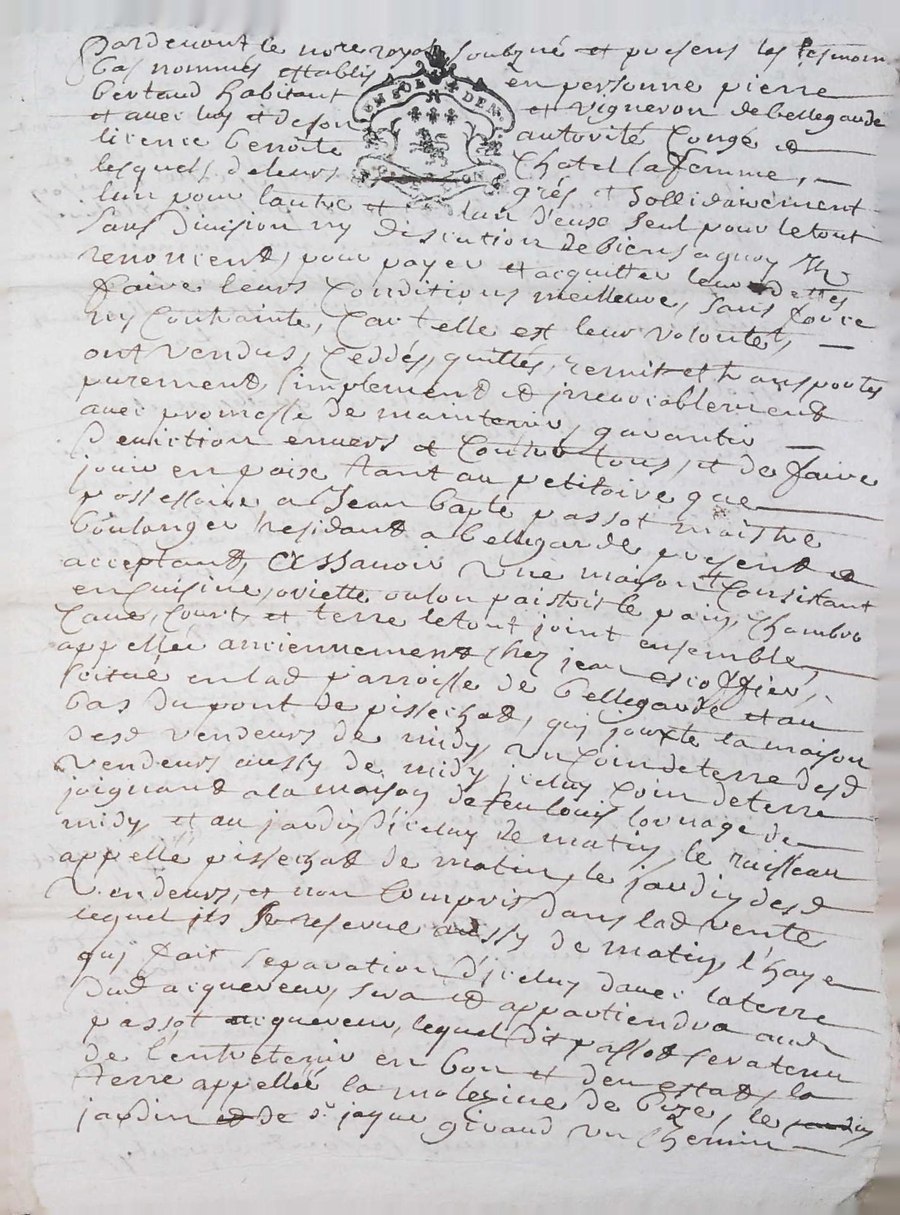 Pardevant le nore royal soubzné et presens les tesmoin
bas nommes establis en personne pierre
bertaud habitant et vigneron de bellegarde
et avec luy et de son autorité Congé et
licence benoite Chatel sa femme,
lesquels de leurs grés et sollidairement
lun pour lautre et lun d'eux seul pour le tout
sans Division ny discution de biens a quoy ils
renoncent, pour payer et acquitter leurs dettes
faire leurs Conditions meilleure, sans force
ny Contrainte, Car telle est leur volonté,
ont vendus, Ceddés, quittés, remis et transportes
purement, simplement et irrevocablement
avec promesse de maintenir, garantir
D'eviction envers et Contre tous, et de faire
jouir en paix tant au petitoire que
possessoire a Jean bapte passot maistre
boulanger residant a bellegarde present et
acceptant, Assavoir Une maison Consistant
en cuisine, oriette ou lon paistris le pain, Chambre
Cave, Court, et terre le tout joint ensemble,
appellée anciennement Chez jean escoffier,
scituée en lad parroisse de bellegarde et au
bas du pont de pissechat, qui jouxte la maison
desd vendeurs de midy, Un Coin de terre desd
vendeurs aussy de midy jceluy Coin de terre
joignant a la maison de feu louis lornage de
midy et au jardin d'jceluy de matin, le ruisseau
appellé pissechat de matin, le jardin desd
Vendeurs, et non Compris dans lad vente
lequel jls se reserve aussy de matin, l'haye
qui fait separation d'jceluy d'avec la terre
Dud acquereur, sera et appartiendra aud
passot acquereur, lequel dit passot sera tenu
de l'entretenir en bon et deu estat, la
terre appellée la molezine de bize, le
jardin de sr jayme giraud un Chemin